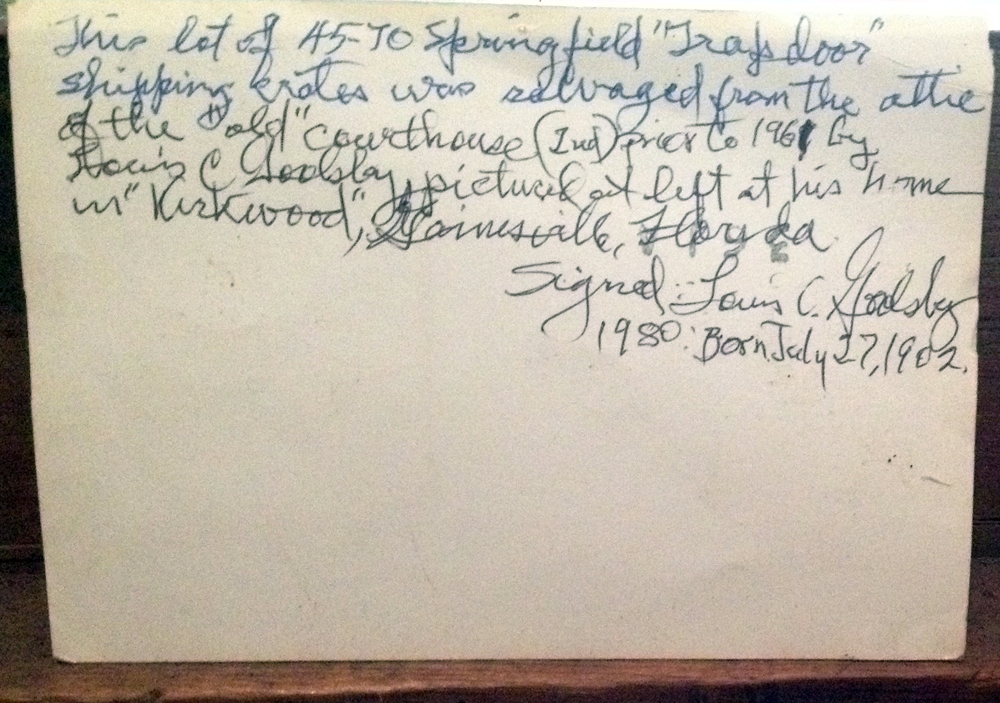 This lot of 45-70 Springfield "Trapsdoor"
shipping krates was salvaged from the attic
of the "old" courthouse (2nd) prior to 1961 by
Louis C Goolsby, pictured at left at his home
in "Kirkwood", Gainesville, Florida.
Signed: Louis C. Goolsby
1980: Born July 27, 1902.